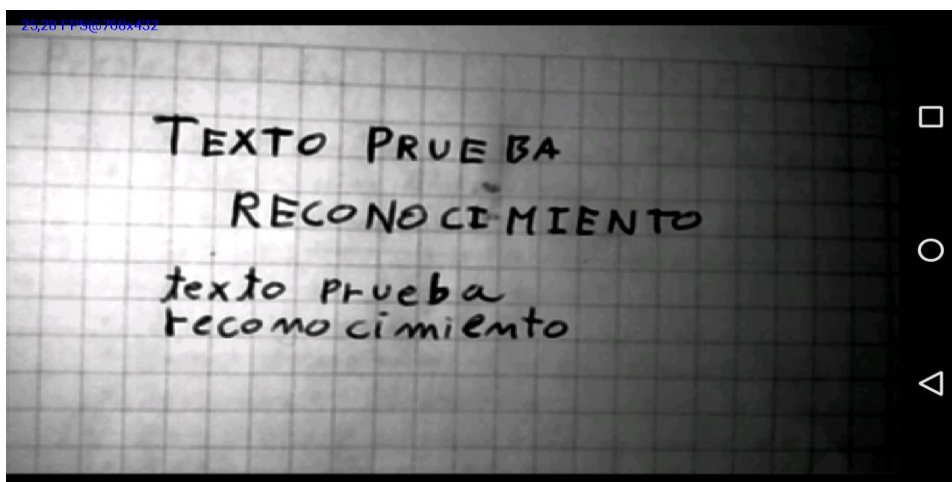 25,20 FPS@768x432
TEXTO PRUEBA
RECONOCIMIENTO
texto prueba
reconocimiento